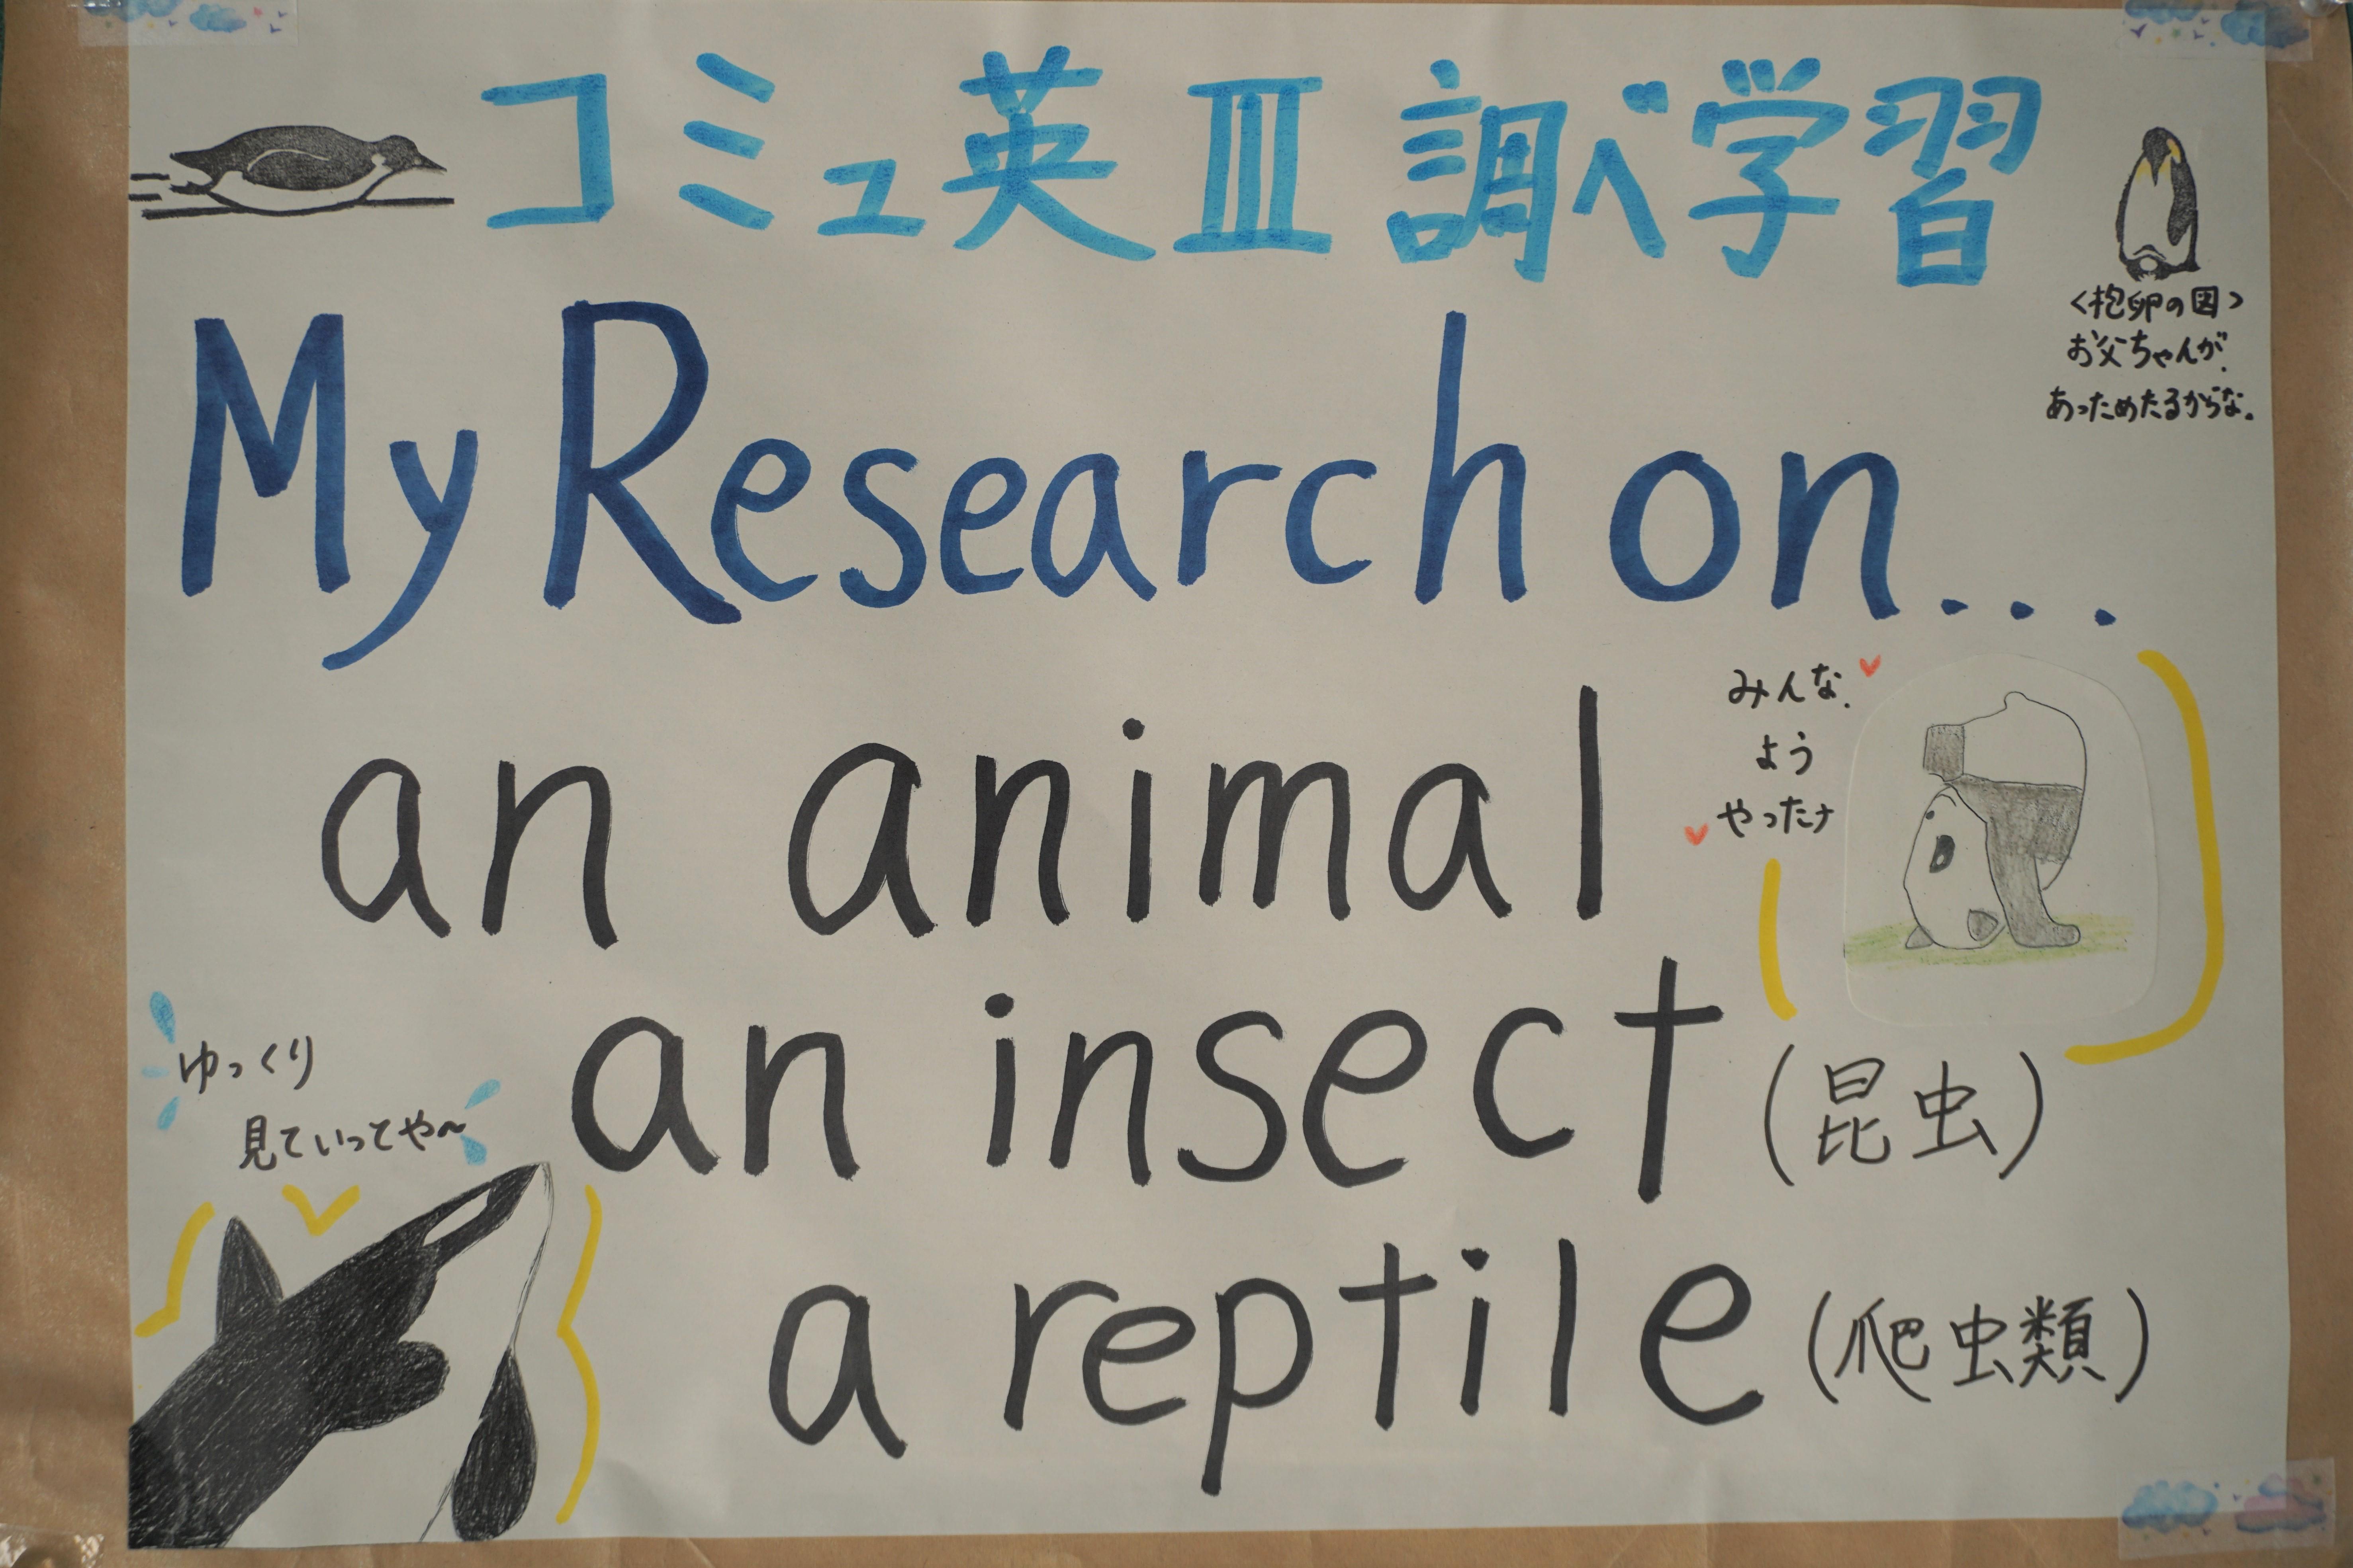 コミュ英Ⅲ 調べ学習
<抱卵の図>
お父ちゃんが、
あっためたるからな。
My Research on...
みんな、
よう
やったナ
an animal
an insect (昆虫)
ゆっくり
見ていってや〜
a reptile (爬虫類)